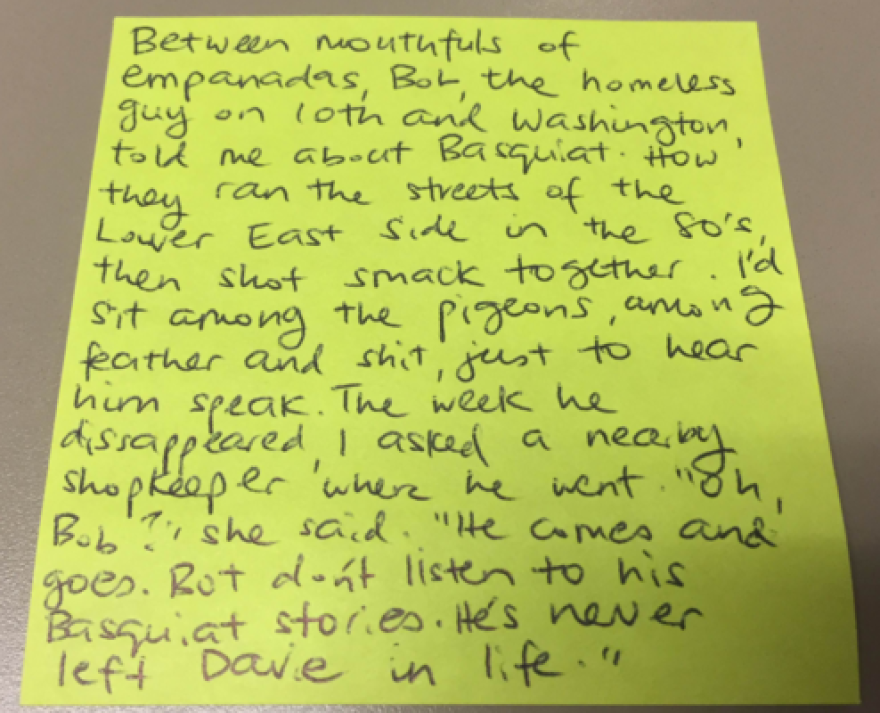 Between mouthfuls of
empanadas, Bob, the homeless
guy on 10th and Washington,
told me about Basquiat. How
they ran the streets of the
Lower East Side in the 80's,
then shot smack together. I'd
sit among the pigeons, among
feather and shit, just to hear
him speak. The week he
dissappeared, I asked a nearby
shopkeeper where he went. "Oh,
Bob?" she said. "He comes and
goes. But don't listen to his
Basquiat stories. He's never
left Davie in life."